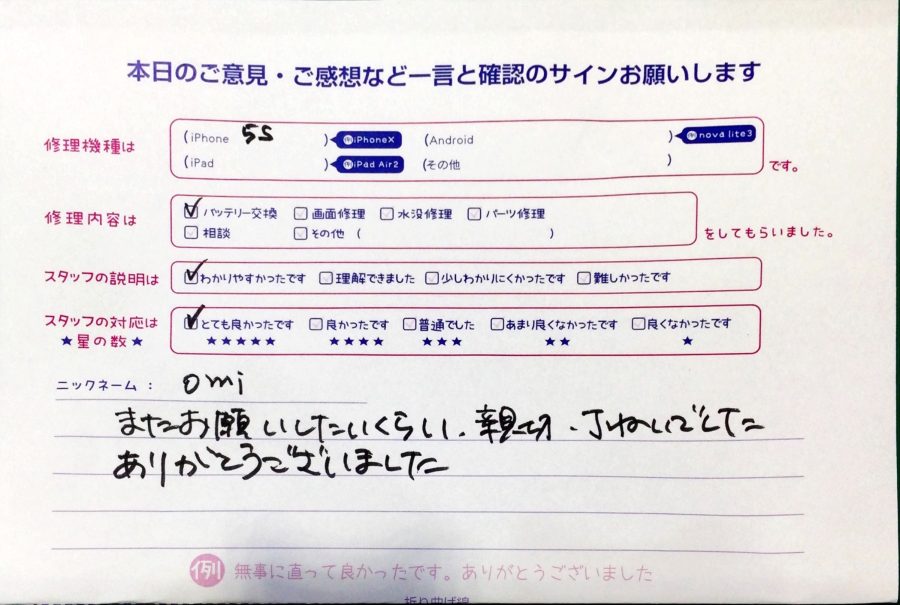 本日のご意見・ご感想など一言と確認のサインお願いします
修理機種は (iPhone 5S ) 例iPhoneX (Android ) 例nova lite3
(iPad ) 例iPad Air2 (その他 ) です。
修理内容は ☑バッテリー交換 □画面修理 □水没修理 □パーツ修理
□相談 □その他 ( ) をしてもらいました。
スタッフの説明は ☑わかりやすかったです □理解できました □少しわかりにくかったです □難しかったです
スタッフの対応は ☑とても良かったです □良かったです □普通でした □あまり良くなかったです □良くなかったです
★星の数★ ★★★★★ ★★★★ ★★★ ★★ ★
ニックネーム: omi
またお願いしたいくらい、親切、丁ねいでした
ありがとうございました
例 無事に直って良かったです。ありがとうございました
折り曲げ線